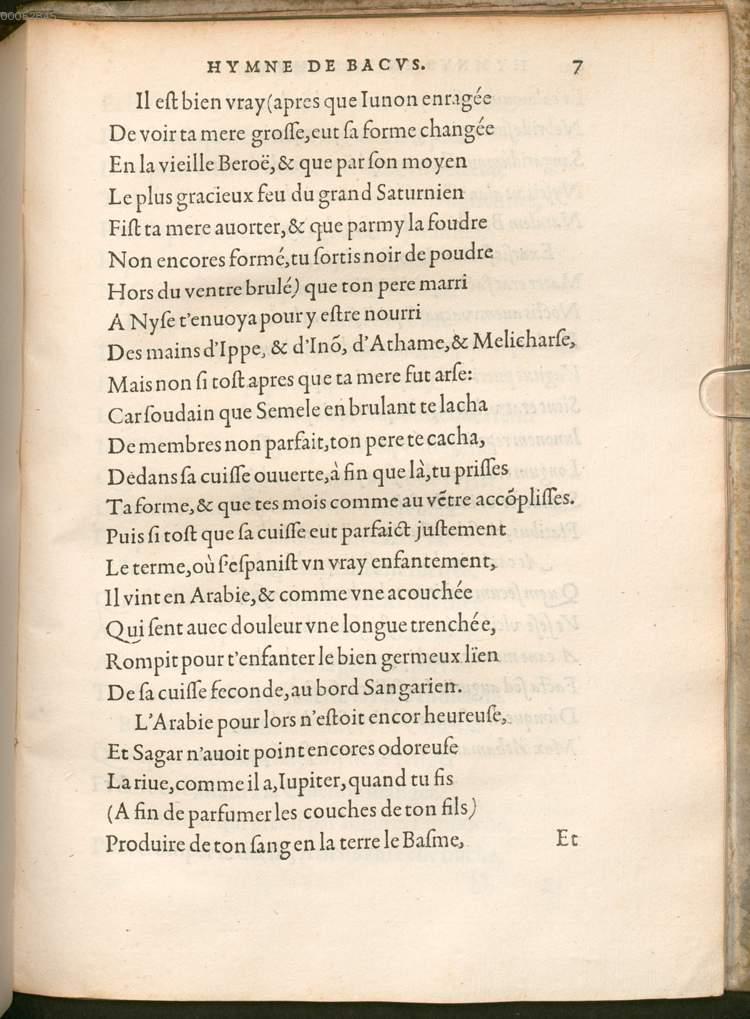 00062845
HYMNE DE BACVS. 7
Il eſt bien vray(apres que Iunon enragée
De voir ta mere groſſe,eut ſa forme changée
En la vieille Beroë,& que par ſon moyen
Le plus gracieux feu du grand Saturnien
Fiſt ta mere auorter,& que parmy la foudre
Non encores formé,tu ſortis noir de poudre
Hors du ventre brulé) que ton pere marri
A Nyſe t'enuoya pour y eſtre nourri
Des mains d'Ippe, & d'Inõ, d'Athame,& Melicharſe,
Mais non ſi toſt apres que ta mere fut arſe:
Car ſoudain que Semele en brulant te lacha
De membres non parfait,ton pere te cacha,
Dedans ſa cuiſſe ouuerte,à fin que là,tu priſſes
Ta forme,& que tes mois comme au vẽtre accõpliſſes.
Puis ſi toſt que ſa cuiſſe eut parfaict juſtement
Le terme,où s'eſpaniſt vn vray enfantement,
Il vint en Arabie,& comme vne acouchée
Qui ſent auec douleur vne longue trenchée,
Rompit pour t'enfanter le bien germeux lïen
De ſa cuiſſe feconde,au bord Sangarien.
L'Arabie pour lors n'eſtoit encor heureuſe,
Et Sagar n'auoit point encores odoreuſe
La riue,comme il a,Iupiter,quand tu fis
(A fin de parfumer les couches de ton fils)
Produire de ton ſang en la terre le Baſme, Et